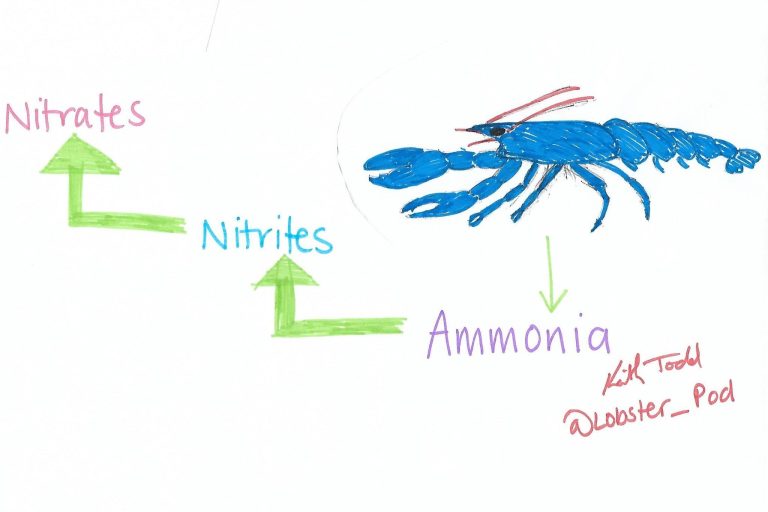 Nitrates
Nitrites
Ammonia
Keith Todd
@Lobster_Pod